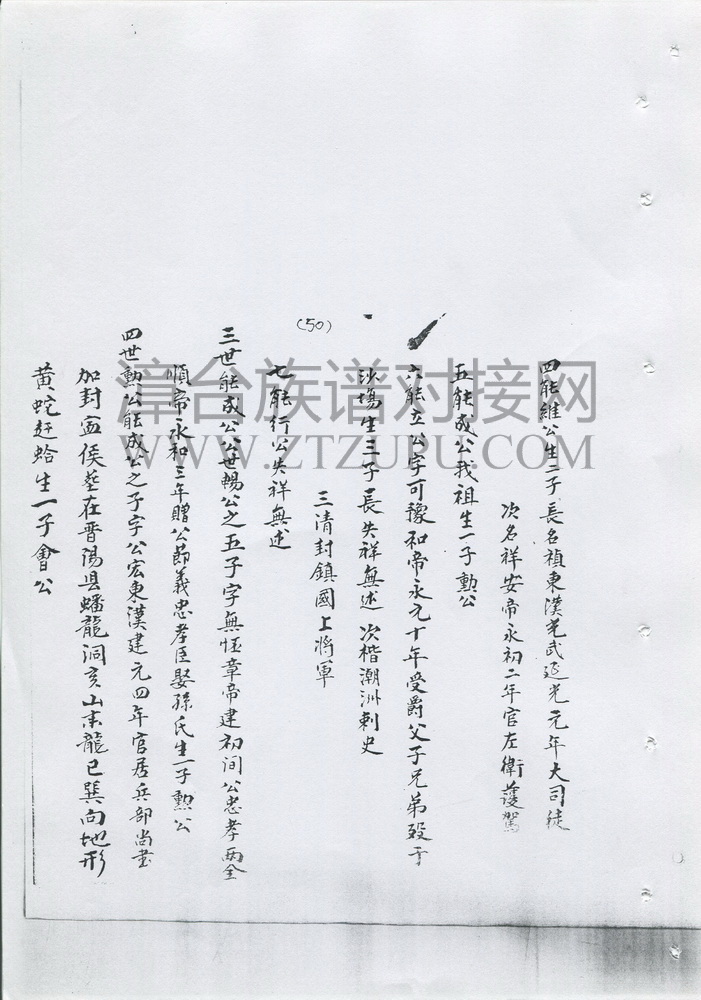 四能維公生二子長名禎東漢光武延光元年大司徒
次名祥安帝永初二年官左衛護駕
五能成公我祖生一子勲公
六能立公字可豫和帝永元十年受爵父子兄弟歿于
沙場生三子長失祥無述次楷潮洲刺史
三清封鎮國上將軍
(50)
七能行公失祥無述
三世能成公公世暢公之五子字無恇章帝建初间公忠孝两全
順帝永和三年贈公節義忠孝臣娶孫氏生一子勲公
四世勲公能成公之子字公宏東漢建元四年官居兵部尚書
加封侯塟在晋陽县蟠龍洞亥山来龍巳巽向地形
黄蛇赶蛤生一子會公
漳台族谱对接网
WWW.ZTZUPU.COM